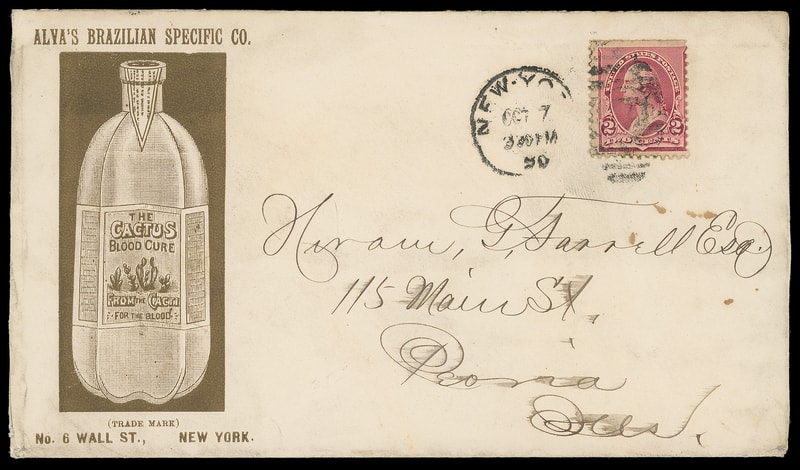 ALVA'S BRAZILIAN SPECIFIC CO.
THE
CACTUS
BLOOD CURE
FROM THE CACTI
FOR THE BLOOD
(TRADE MARK)
No. 6 WALL ST., NEW YORK.
NEW-YO
OCT 7
330PM
90
UNITED STATES POSTAGE
2 2
TWO CENTS
Hiram, G, Farrell Esq.
115 Main St.
Peoria
Ills.